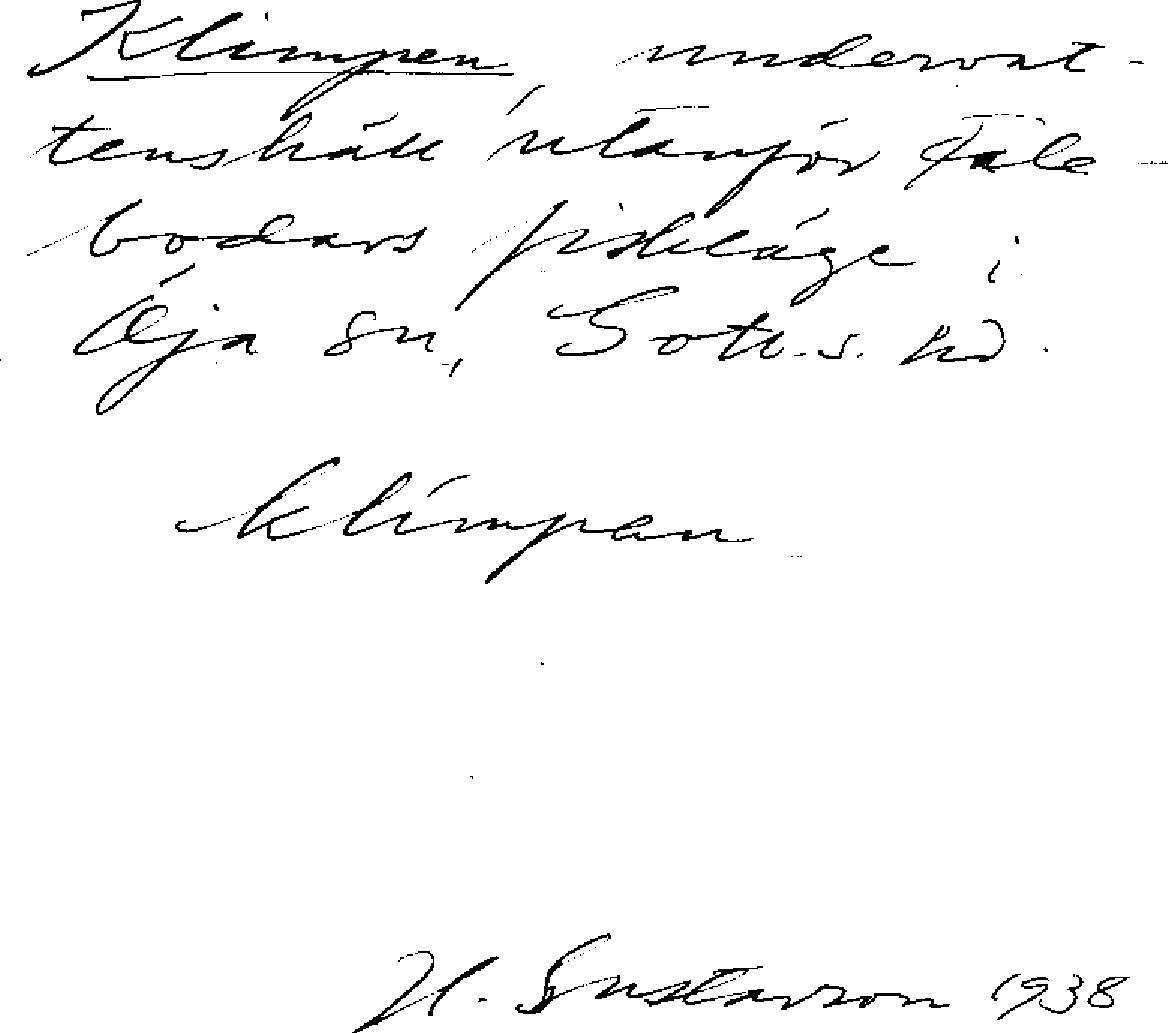 Klimpen, undervat-
tenshäll utanför Fale-
bodars fiskläge i
Öja sn, Gotl.s. hd.
klimpen
H. Gustavson 1938